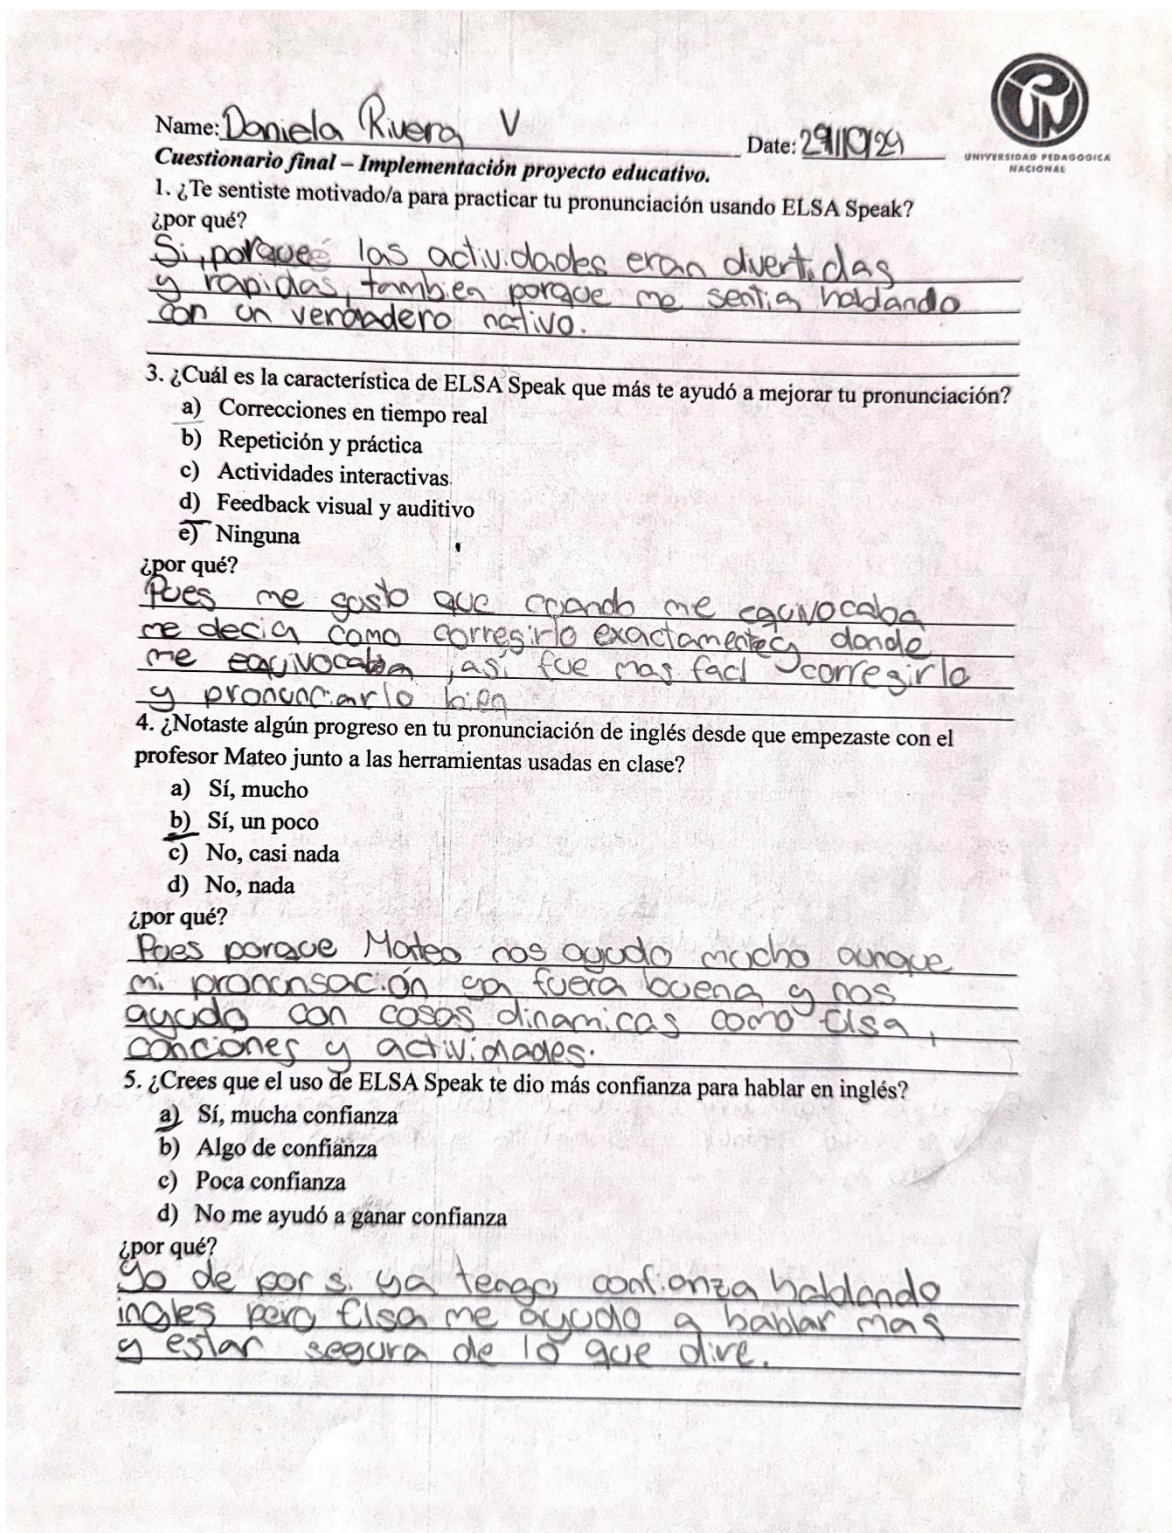 Name: Daniela Rivera V
Date: 29/10/24
UNIVERSIDAD PEDAGOGICA
NACIONAL
Cuestionario final – Implementación proyecto educativo.
1. ¿Te sentiste motivado/a para practicar tu pronunciación usando ELSA Speak?
¿por qué?
Si, porque las actividades eran divertidas
y rapidas, tambien porque me sentia haldando
con un verdadero nativo.
3. ¿Cuál es la característica de ELSA Speak que más te ayudó a mejorar tu pronunciación?
a) Correcciones en tiempo real
b) Repetición y práctica
c) Actividades interactivas.
d) Feedback visual y auditivo
e) Ninguna
¿por qué?
Pues me gusto que cuando me equivocaba
me decia como corregirlo exactamente y donde
me equivocaba, asi fue mas facl corregirlo
y pronunciarlo bien
4. ¿Notaste algún progreso en tu pronunciación de inglés desde que empezaste con el
profesor Mateo junto a las herramientas usadas en clase?
a) Sí, mucho
b) Sí, un poco
c) No, casi nada
d) No, nada
¿por qué?
Pues porque Mateo nos ayudo mucho aunque
mi pronunsación ya fuera buena y nos
ayudo con cosas dinamicas como Elsa,
canciones y actividades.
5. ¿Crees que el uso de ELSA Speak te dio más confianza para hablar en inglés?
a) Sí, mucha confianza
b) Algo de confianza
c) Poca confianza
d) No me ayudó a ganar confianza
¿por qué?
Yo de por si ya tengo confianza haldando
ingles pero Elsa me ayudo a bablar mas
y estar segura de lo que dire.